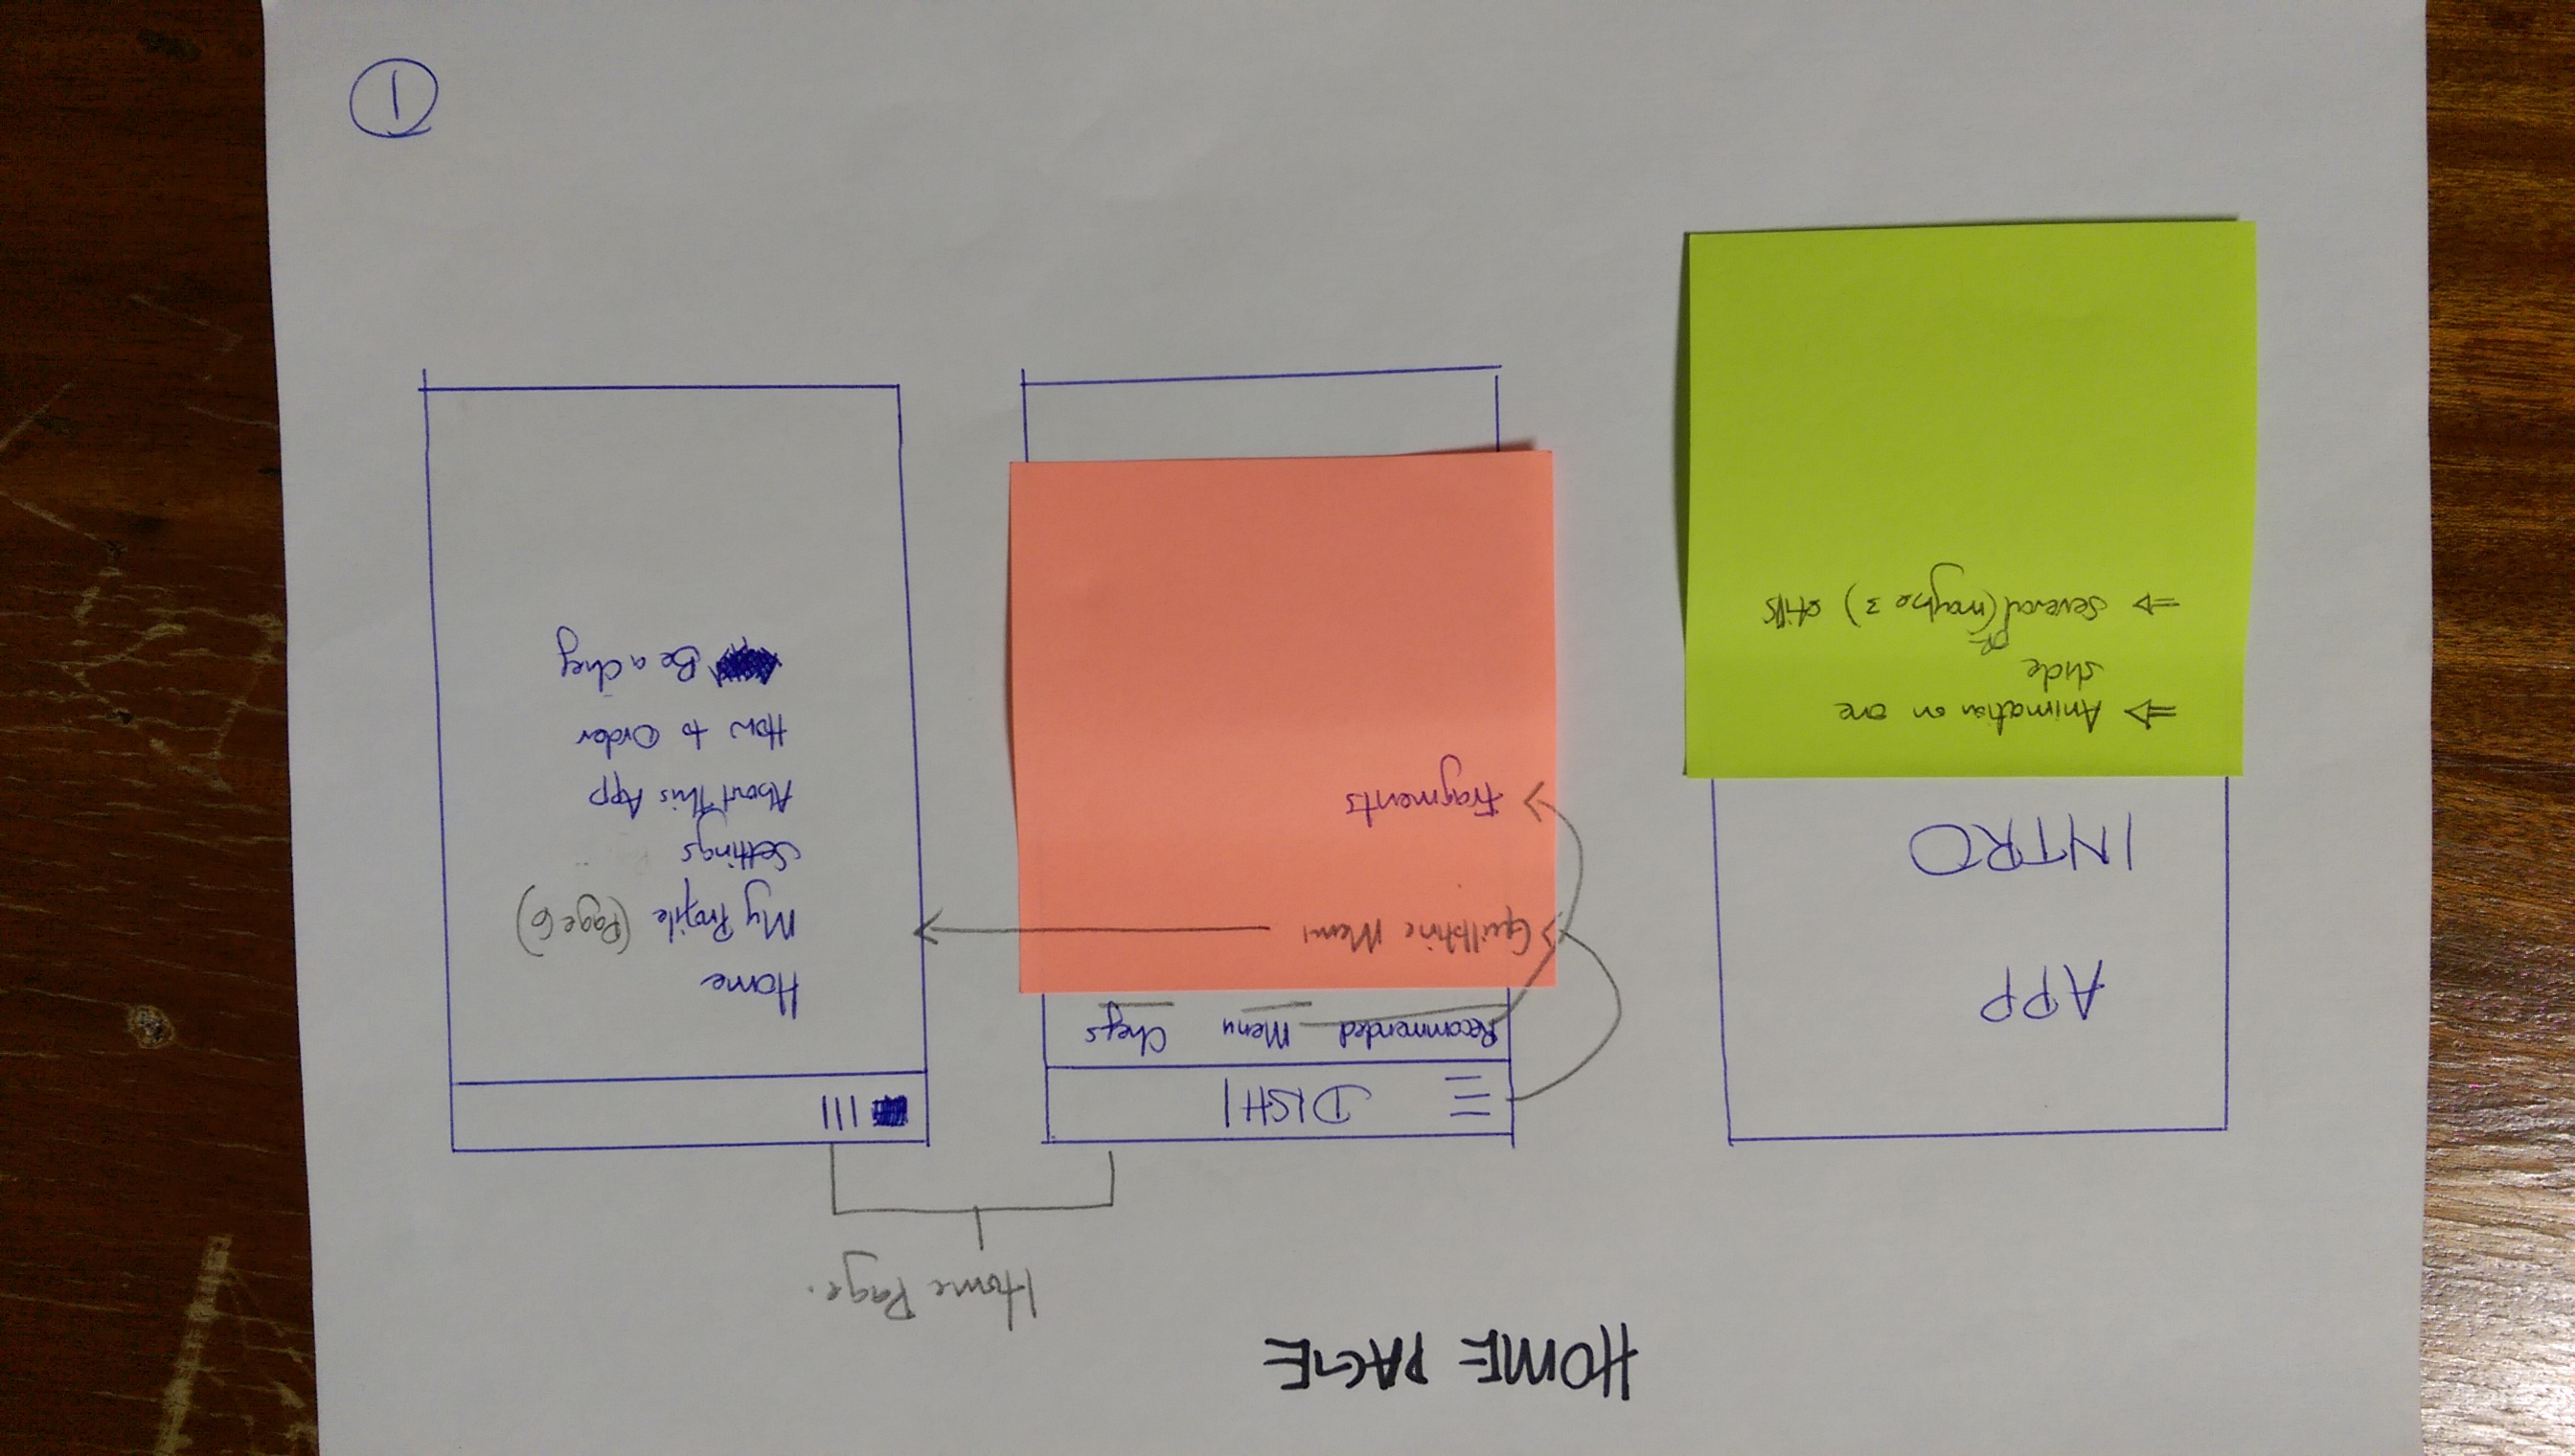 HOME PAGE
Home Page.
APP
INTRO
⇒ Animation on one
slide
or
⇒ Several (maybe 3) stills
DISHI
Recommended Menu Chefs
Guillotine Menu
Fragments
Home
My Profile (Page 6)
Settings
About This App
How to Order
Be a Chef
1